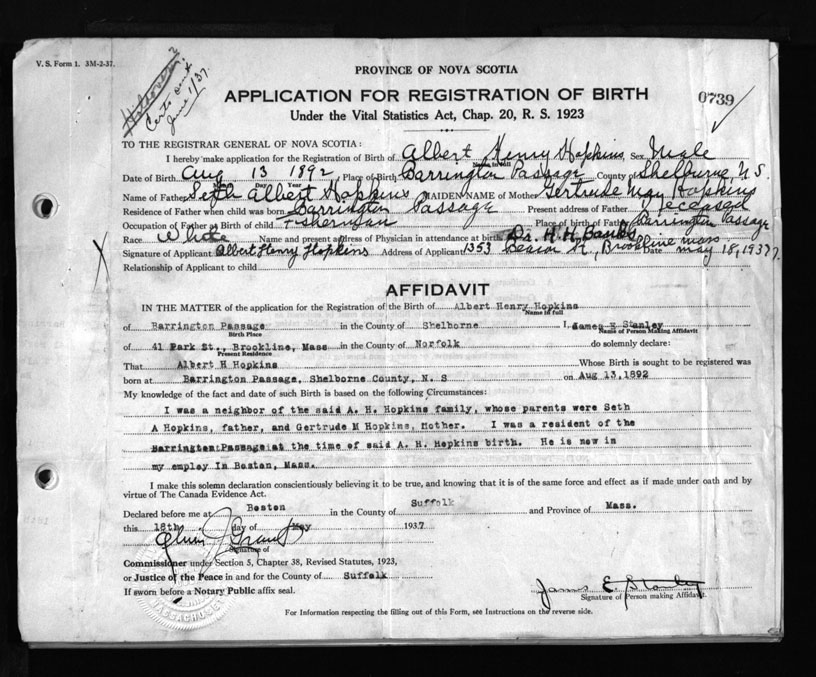 V. S. Form 1. 3M-2-37.
Certs out
June 1/37.
PROVINCE OF NOVA SCOTIA
APPLICATION FOR REGISTRATION OF BIRTH
0739
Under the Vital Statistics Act, Chap. 20, R. S. 1923
TO THE REGISTRAR GENERAL OF NOVA SCOTIA:
I hereby make application for the Registration of Birth of Albert Henry Hopkins Sex Male
Name in full
Date of Birth Aug 13 1892 Place of Birth Barrington Passage County of Shelburne, N S.
Day Year
Name of Father Seth Albert Hopkins MAIDEN NAME of Mother Gertrude May Hopkins
Residence of Father when child was born Barrington Passage Present address of Father Deceased
Occupation of Father at Birth of child Fisherman Place of birth of Father Barrington Passage
Race White Name and present address of Physician in attendance at birth Dr. H. H. Banks
Signature of Applicant Albert Henry Hopkins Address of Applicant 1353 Beacon St., Brookline Mass Date May 18, 1937
Relationship of Applicant to child
AFFIDAVIT
IN THE MATTER of the application for the Registration of the Birth of Albert Henry Hopkins
Name in full
of Barrington Passage in the County of Shelborne I, James E Stanley
Birth Place Name of Person Making Affidavit
of 41 Park St., Brookline, Mass in the County of Norfolk do solemnly declare:
Present Residence
That Albert H Hopkins Whose Birth is sought to be registered was
born at Barrington Passage, Shelborne County, N. S on Aug 13, 1892
My knowledge of the fact and date of such Birth is based on the following Circumstances:
I was a neighbor of the said A. H. Hopkins family, whose parents were Seth
A Hopkins, father, and Gertrude M Hopkins, Mother. I was a resident of the
Barrington Passage at the time of said A. H. Hopkins birth. He is now in
my employ In Boston, Mass.
I make this solemn declaration conscientiously believing it to be true, and knowing that it is of the same force and effect as if made under oath and by
virtue of The Canada Evidence Act.
Declared before me at Boston in the County of Suffolk and Province of Mass.
this 18th day of May 1937
Signature of
Commissioner under Section 5, Chapter 38, Revised Statutes, 1923,
or Justice of the Peace in and for the County of Suffolk
If sworn before a Notary Public affix seal.
James E. Stanley
Signature of Person making Affidavit.
For Information respecting the filling out of this Form, see Instructions on the reverse side.